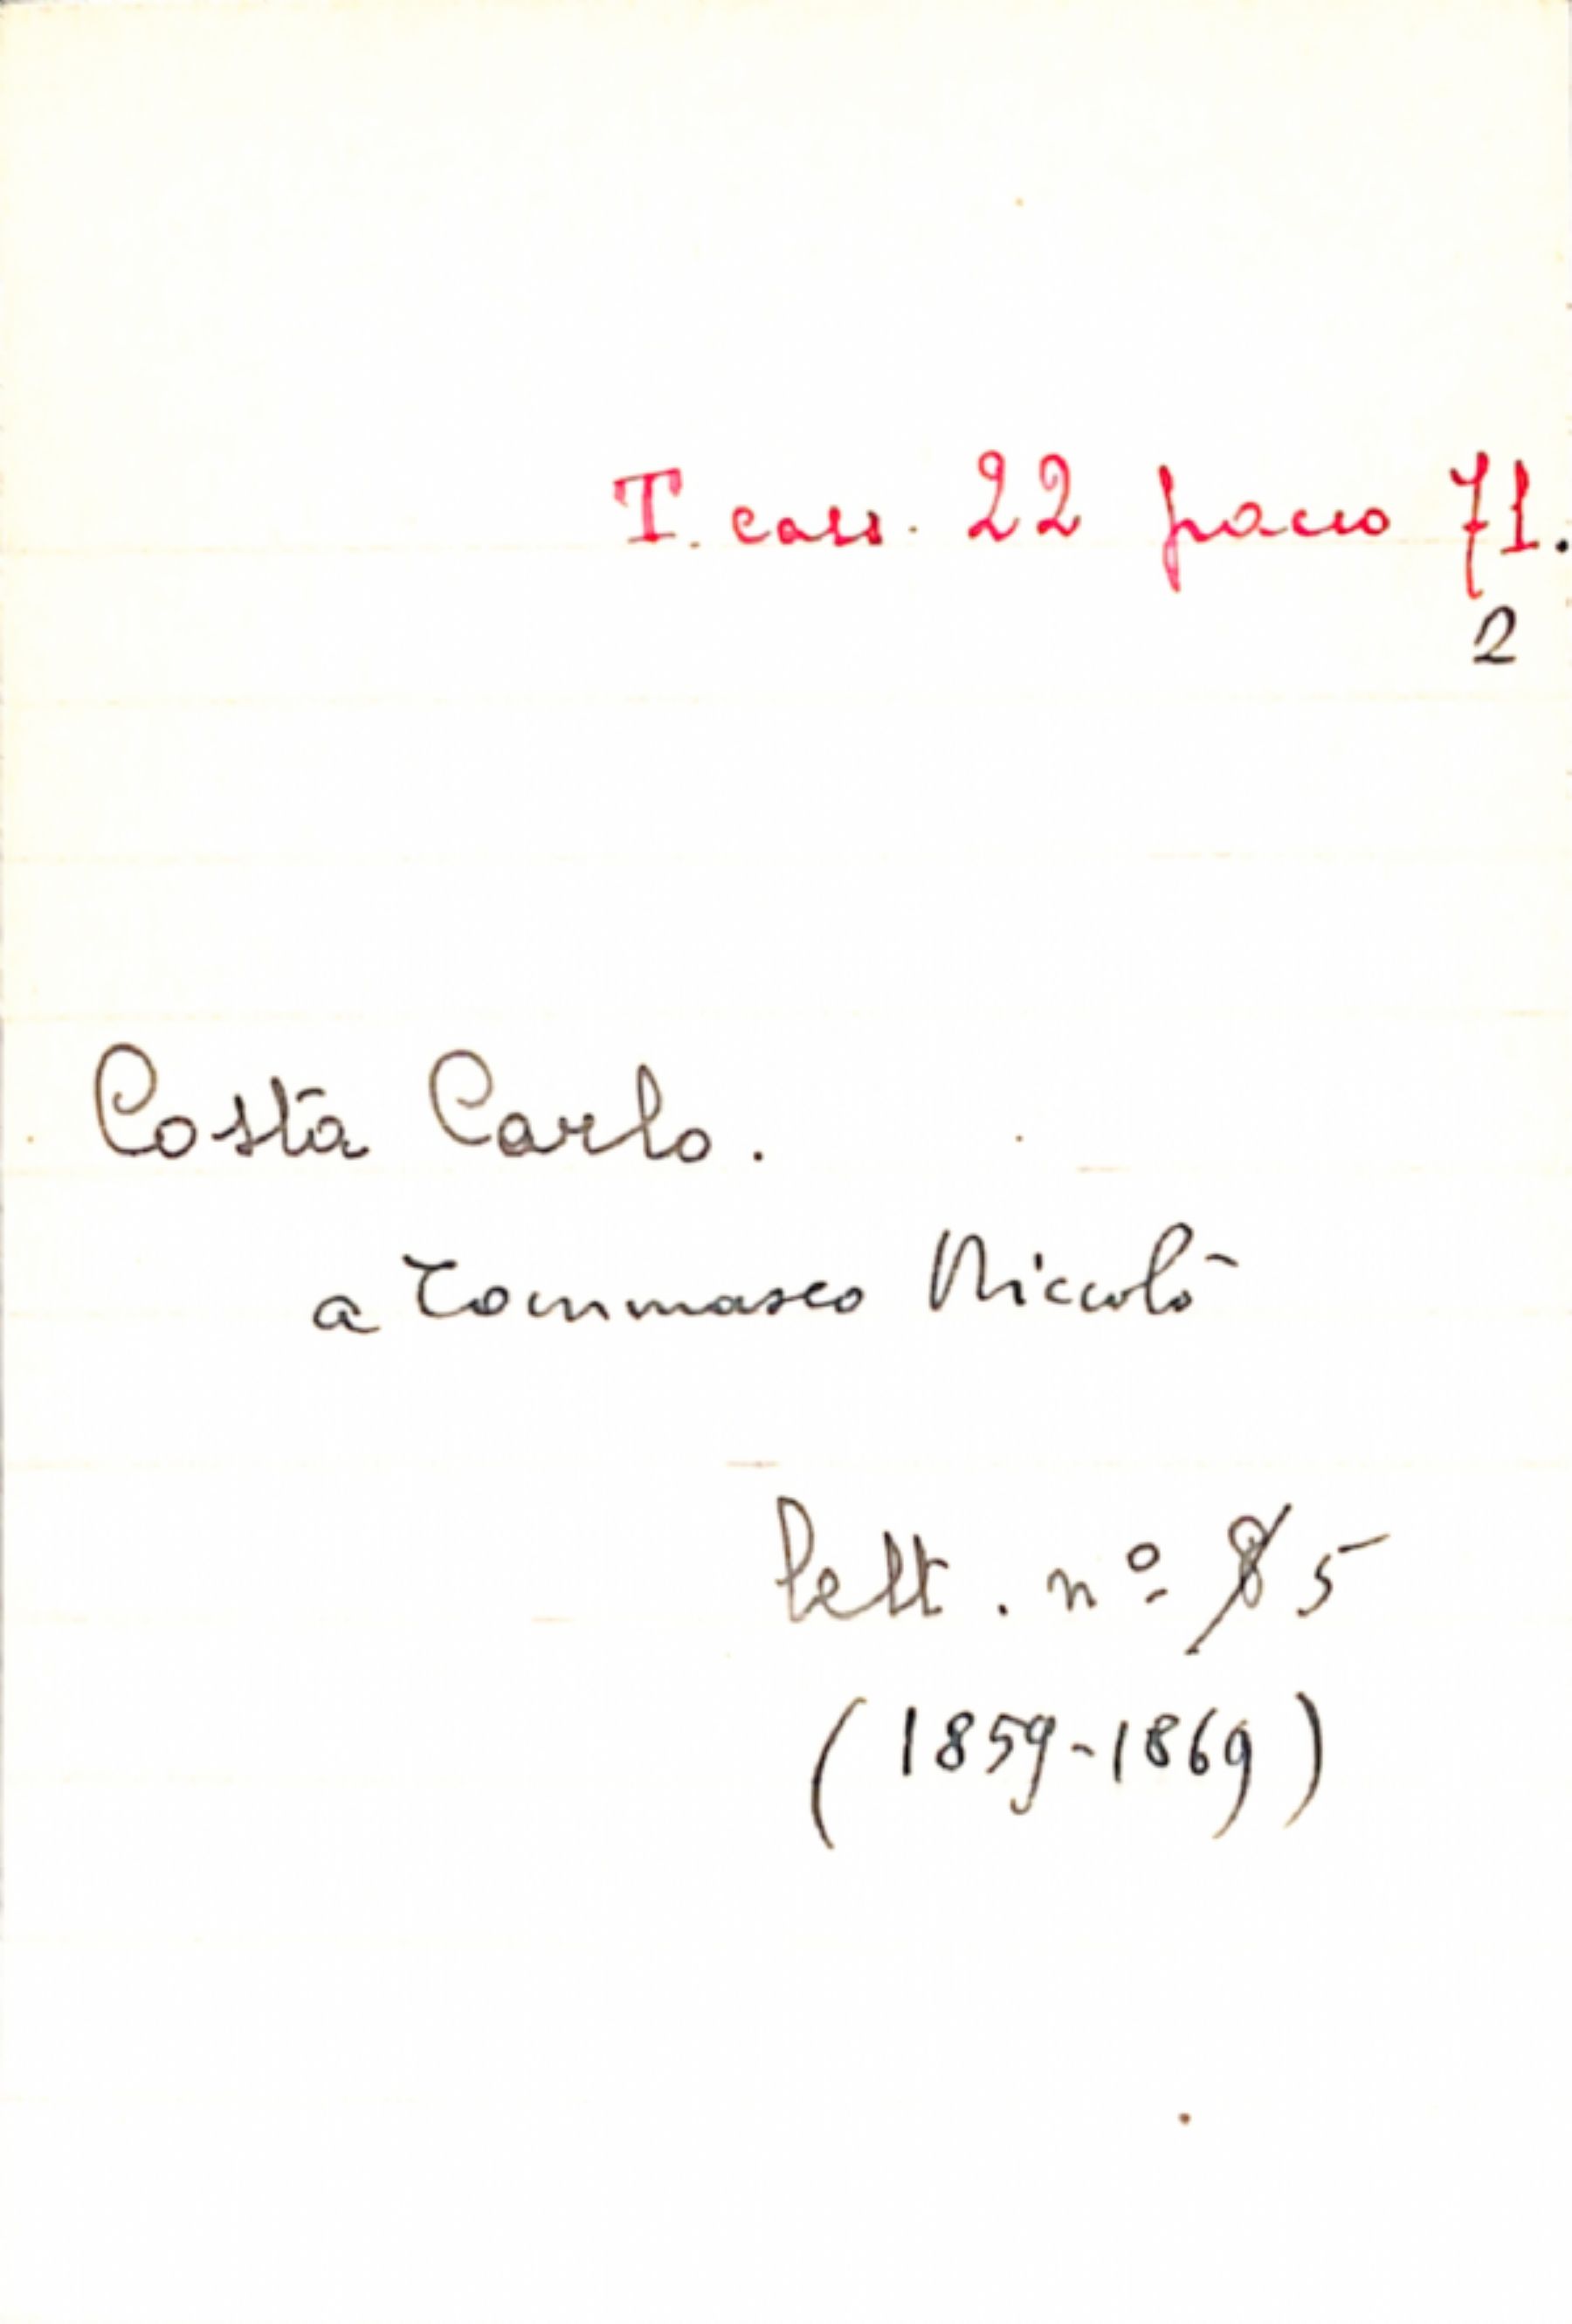 T. cass. 22 pacco 71.
2
Costa Carlo.
a Tommaseo Niccolò
Lett. nº 8 5
(1859-1869)